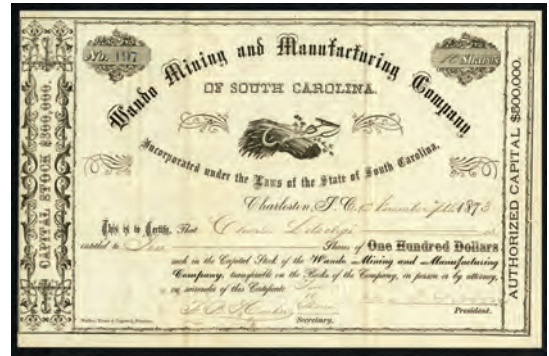 No. 197
10 Shares
Wando Mining and Manufacturing Company
OF SOUTH CAROLINA.
Incorporated under the Laws of the State of South Carolina.
CAPITAL STOCK $300,000.
AUTHORIZED CAPITAL $500,000.
Charleston, S. C. 1873
This is to Certify, That Charles
entitled to Ten Shares of One Hundred Dollars
each in the Capital Stock of the Wando Mining and Manufacturing
Company, transferable on the Books of the Company, in person or by attorney,
on surrender of this Certificate
Secretary.
President.